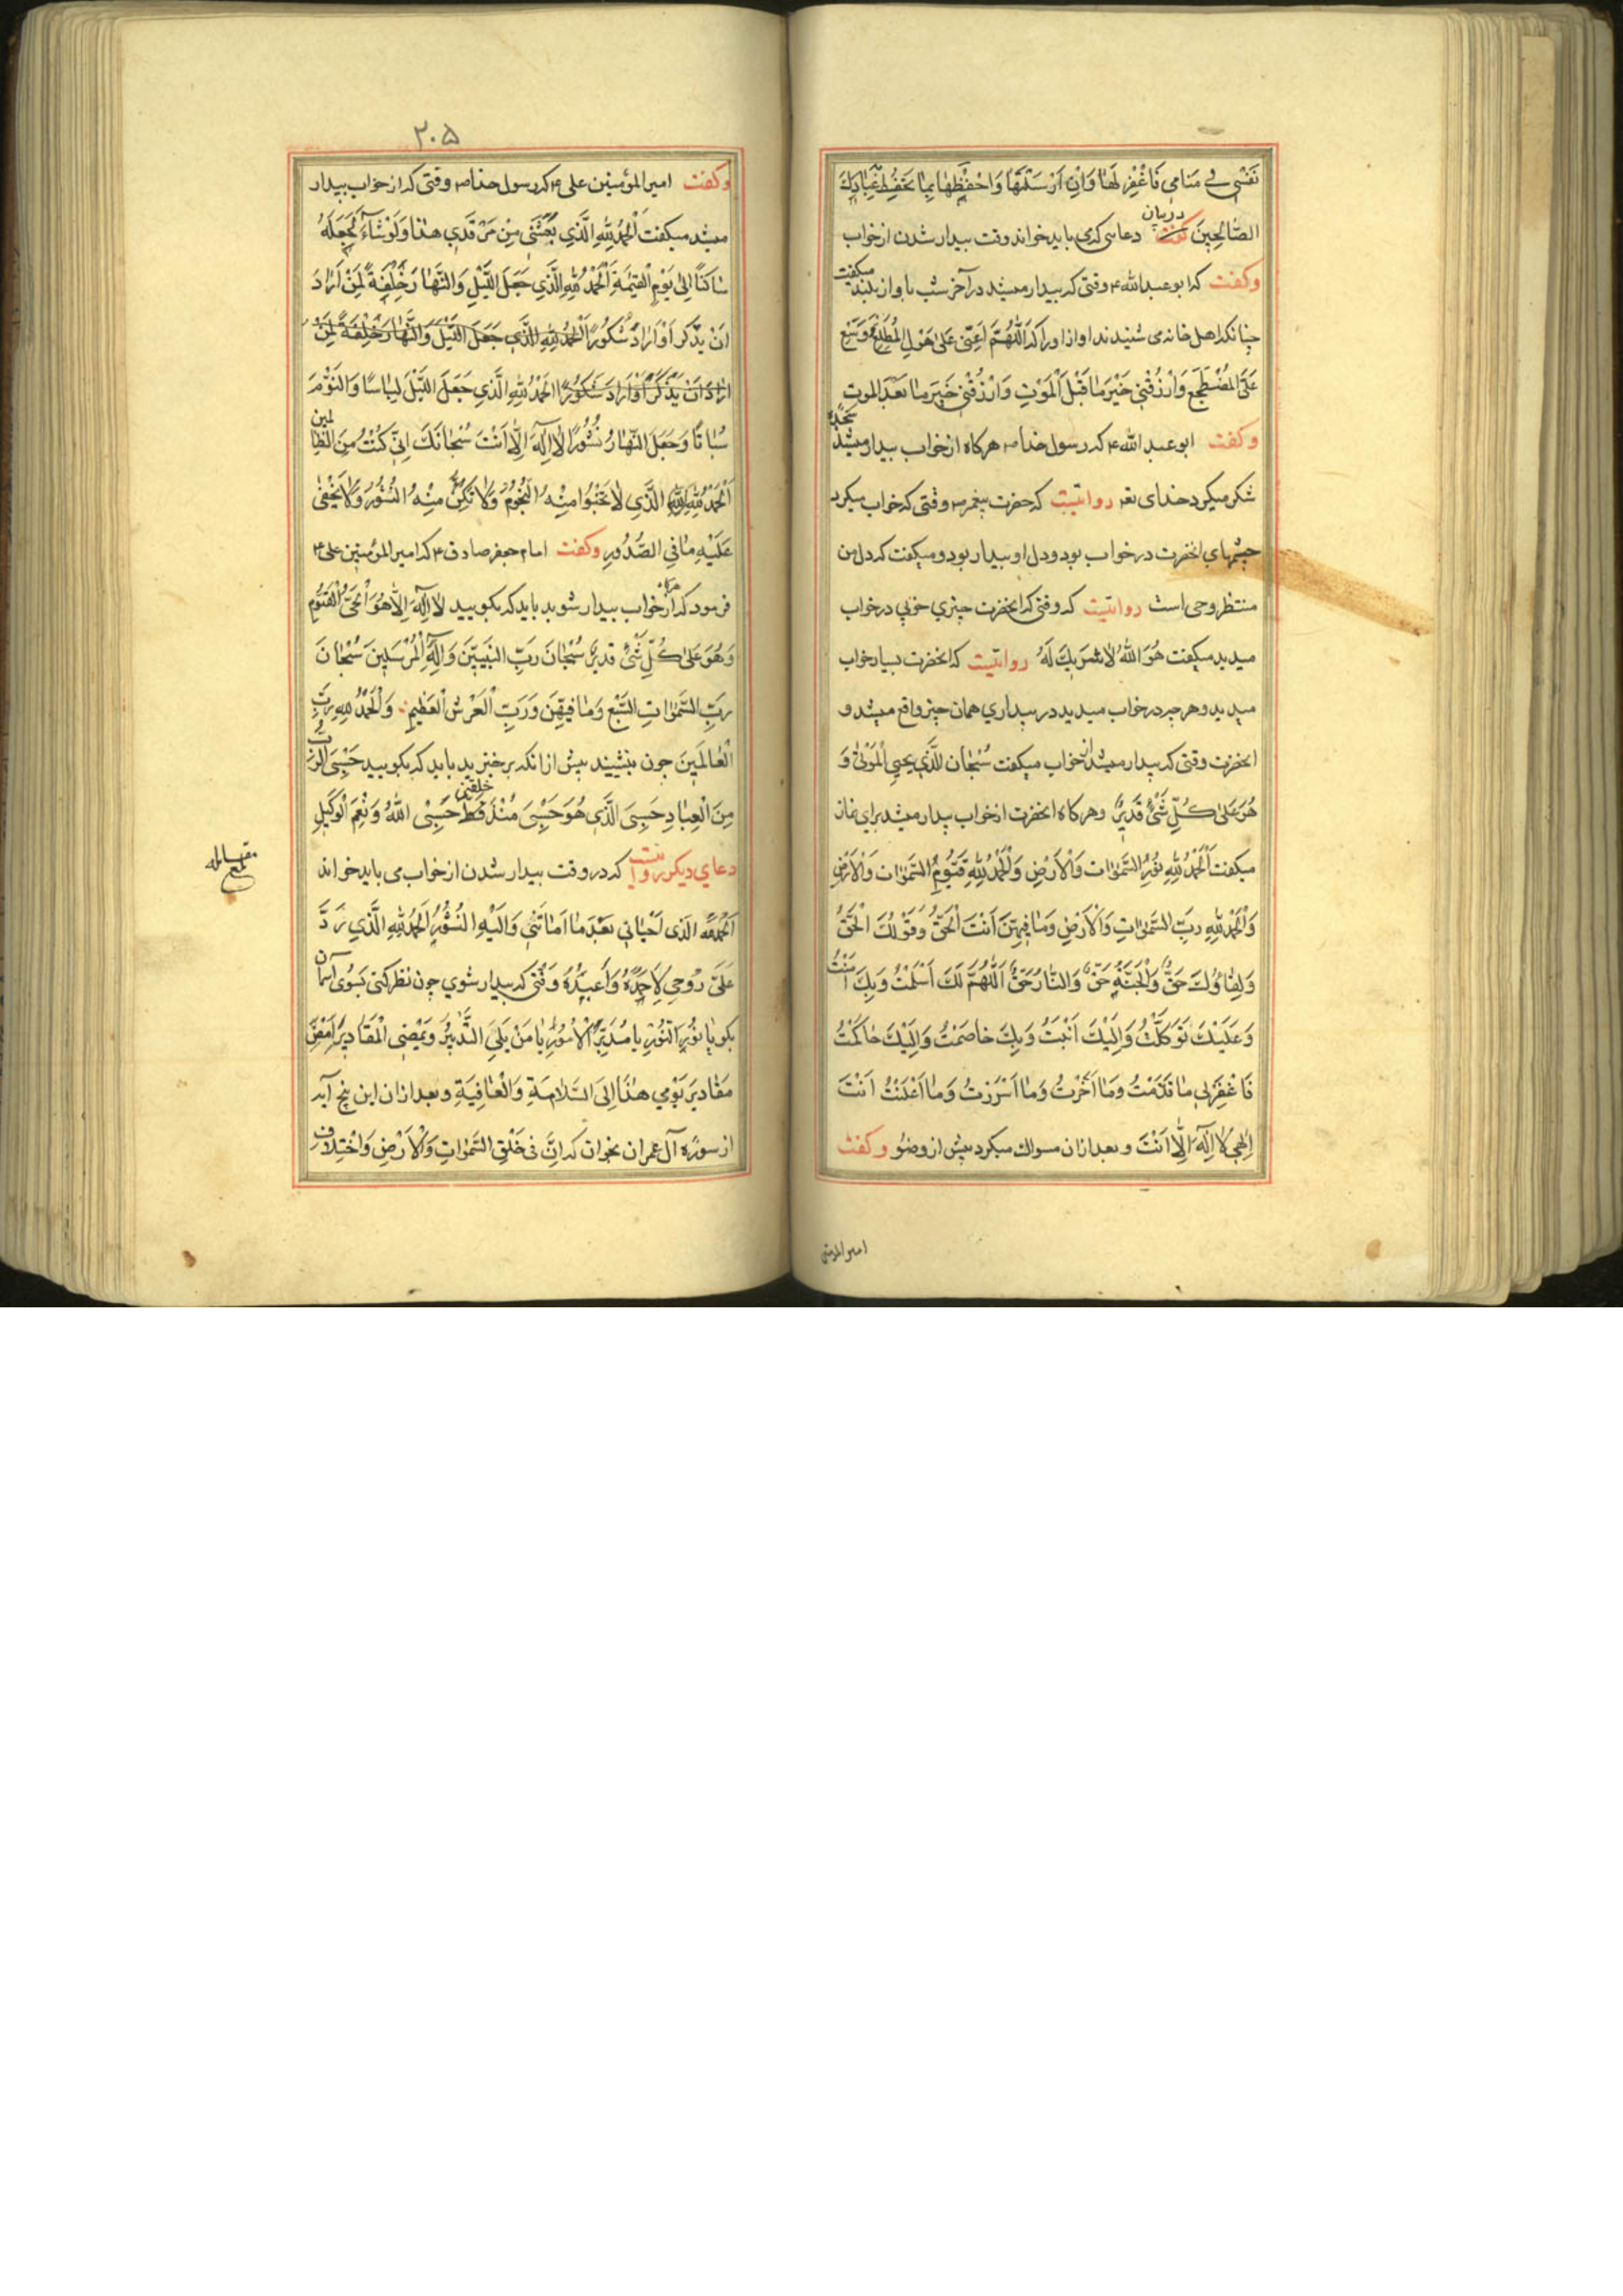 نَفْسِي فِي مَنَامِي فَاغْفِرْ لَهَا وَاِنْ اَرْسَلْتَهَا وَاحْفَظْهَا بِمَا تَحْفَظُ عِبَادَكَ
الصَّالِحِينَ گفت در بیان دعاهایی که می باید خواند وقت بیدار شدن از خواب
وکفت که ابو عبد الله ع وقتی که بیدار میشد در آخر شب باواز بلند میکفت
چنانکه اهل خانه می شنیدند اواز او را که اَللّٰهُمَّ اَعِنِّي عَلٰى هَوْلِ الْمُطَّلَعِ وَوَسِّعْ
عَلَىَّ الْمُضْطَجَعَ وَارْزُقْنِي خَيْرَ مَا قَبْلَ الْمَوْتِ وَارْزُقْنِي خَيْرَ مَا بَعْدَ الموت
وکفت ابو عبد الله ع که رسول خدا ص هرکاه از خواب بیدار میشد سجده
شکر میکرد خدای تعه روایتست که حضرت پیغمبر ص وقتی که خواب میکرد
چشمهای انحضرت در خواب بود و دل او بیدار بود و میکفت که دل من
منتظر وحی است روایتست که وقتی که انحضرت چیزي خوبي در خواب
میدید میکفت هُوَ اللهُ لا شَرِيكَ لَهُ روایتست که انحضرت بسیار خواب
میدید و هر چه در خواب میدید در بیداري همان چیز واقع میشد و
انحضرت وقتی که بیدار میشد از خواب میکفت سُبْحَان الَّذِي يُحيِي الْمَوْتٰى وَ
هُوَ عَلٰى كُلِّ شَيْءٍ قَدِيرٌ وهرکاه انحضرت از خواب بیدار میشد برای نماز
میکفت اَلْحَمْدُ لِلّٰهِ نُورِ السَّمٰوَات وَالْاَرْضِ وَالْحَمْدُ لِلّٰهِ قَيُّومِ السَّمٰوَات وَالْاَرْضِ
وَالْحَمْدُ لِلّٰهِ رَبِّ السَّمٰوَاتِ وَالْاَرْضِ وَمَا فِيهِنَّ اَنْتَ الْحَقُّ وَقَوْلُكَ الْحَقُّ
وَلِقَاؤُكَ حَقٌّ وَالْجَنَّةُ حَقٌّ وَالنَّارُ حَقٌّ اَللّٰهُمَّ لَكَ اَسْلَمْتُ وَبِكَ آمَنْتُ
وَعَلَيْكَ تَوَكَّلْتُ وَاِلَيْكَ اَنَبْتُ وَبِكَ خَاصَمْتُ وَاِلَيْكَ حَاكَمْتُ
فَاغْفِرْلِي مَا قَدَّمْتُ وَمَا اَخَّرْتُ وَمَا اَسْرَرْتُ وَمَا اَعْلَنْتُ اَنْتَ
اِلٰهِي لَا اِلٰهَ اِلَّا اَنْتَ و بعد ازان مسواك میکرد پیش از وضو وکفت
امیر المؤمنین
۲۰۵
وکفت امیر المؤمنین علی ع که رسول خدا ص وقتی که از خواب بیدار
میشد میکفت اَلْحَمْدُ لِلّٰهِ الَّذِي بَعَثَنِي مِنْ مَرْقَدِي هٰذَا وَلَوْ شَاءَ لَجَعَلَهُ
سَاكِنًا اِلٰى يَوْمِ الْقِيٰمَةِ اَلْحَمْدُ لِلّٰهِ الَّذِي جَعَلَ اللَّيْلَ وَالنَّهَارَ خِلْفَةً لِمَنْ اَرَادَ
اَنْ يَذَّكَّرَ اَوْ اَرَادَ شُكُورًا اَلْحَمْدُ لِلّٰهِ الَّذِي جَعَلَ اللَّيْلَ وَالنَّهَارَ خِلْفَةً لِمَنْ
اَرَادَ اَنْ يَذَّكَّرَ اَوْ اَرَادَ شُكُورًا اَلْحَمْدُ لِلّٰهِ الَّذِي جَعَلَ اللَّيْلَ لِبَاسًا وَالنَّوْمَ
سُبَاتًا وَجَعَلَ النَّهَارَ نُشُورًا لَا اِلٰهَ اِلَّا اَنْتَ سُبْحَانَكَ اِنِّي كُنْتُ مِنَ الظَّالِمِين
اَلْحَمْدُ لِلّٰهِ الَّذِي لَا تَخْبُوا مِنْهُ النُّجُومُ وَلَا تَكِنُّ مِنْهُ السُّتُورُ وَلَا يَخْفٰى
عَلَيْهِ مَا فِي الصُّدُورِ وکفت امام جعفر صادق ع که امیر المؤمنین علی ع
فرمود که هرکاه از خواب بیدار شوید باید که بکویید لَا اِلٰهَ اِلَّا هُوَ الْحَيُّ الْقَيُّومُ
وَهُوَ عَلٰى كُلِّ شَيْءٍ قَدِيرٌ سُبْحَانَ رَبِّ النَّبِيِّينَ وَاِلٰهِ الْمُرْسَلِينَ سُبْحَانَ
رَبِّ السَّمٰوَاتِ السَّبْعِ وَمَا فِيهِنَّ وَرَبِّ الْعَرْشِ الْعَظِيمِ وَالْحَمْدُ لِلّٰهِ رَبِّ
الْعَالَمِينَ چون بنشینید پیش از انکه برخیزید باید که بکویید حَسْبِيَ الرَّبُّ
مِنَ الْعِبَادِ حَسْبِيَ الَّذِي هُوَ حَسْبِيَ مُنْذُ خلقنی قط حَسْبِيَ اللهُ وَنِعْمَ الْوَكِيلِ
دعای دیکر روایتست که در وقت بیدار شدن از خواب می باید خواند
اَلْحَمْدُ لله الَّذِي اَحْيَانِي بَعْدَ مَا اَمَاتَنِي وَاِلَيْهِ النُّشُورُ اَلْحَمْدُ لِلّٰهِ الَّذِي رَدَّ
عَلَىَّ رُوحِي لِاَحْمَدَهُ وَاَعْبُدَهُ وقتی که بیدار شوي چون نظر کنی بسوی آسمان
بکو یَا نُورَ النُّورِ يَا مُدَبِّرَ الْاُمُورِ يَا مَنْ يَلِيَ التَّدْبِيرَ وَيُمْضِي الْمَقَادِيرَ اَمْضِ
مَقَادِيرَ يَوْمِي هٰذَا اِلَى السَّلَامَةِ وَالْعَافِيَةِ و بعد ازان این پنج آیه
از سوره آل عمران بخوان که اِنَّ فِي خَلْقِ السَّمٰوَاتِ وَالْاَرْضِ وَاخْتِلَافِ